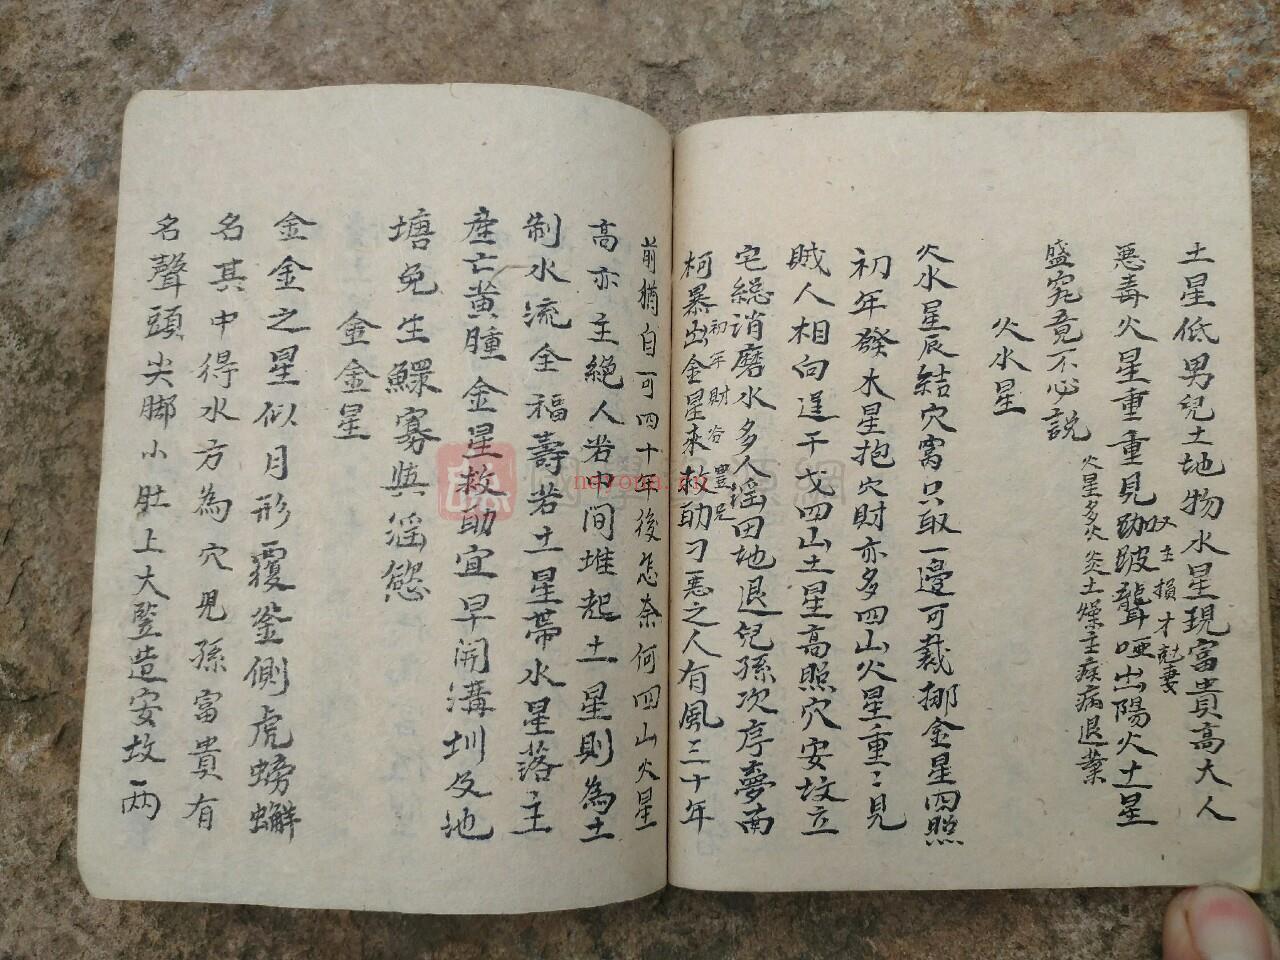 土星低男兒土地物水星現富貴高大人
悪毒火星重重見跏跛聾啞出陽火土星
主損才尅妻
盛究竟不心説
火星多火炎土燥主疾病退業
火水星
火水星辰結穴窩只取一邊可裁挪金星四照
初年發水星抱穴財亦多四山火星重〻見
賊人相向逞干戈四山土星高照穴安坟立
宅縂消磨水多人滛田地退兒孫次序夢南
柯暴出金星來救助刁惡之人有風三十年
初年財谷豐足
前猶自可四十年後怎奈何四山火星
高亦主絶人若中间堆起土星則為土
制水流全福壽若土星帶水星落主
産亡黄腫金星救助宜早開溝圳及池
塘免生鰥寡與滛慾
金金星
金金之星似月形覆釜側虎螃蠏
名其中得水方為穴見孫富貴有
名聲頭尖脚小肚上大竪造安坟一两